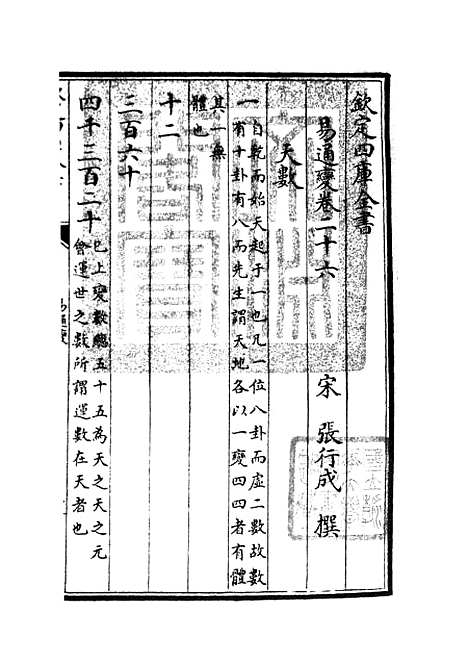 欽定四庫全書
易通變卷二十六
宋 張行成 撰
天數
一
自乾而始天起于一也凡一位八卦而虛二數故數
有十卦有八而先生謂天地各以一變四四者有體
其一無
體也
十二
三百六十
四千三百二十
已上變數總五十五為天之天之元
會運世之數所謂運數在天者也